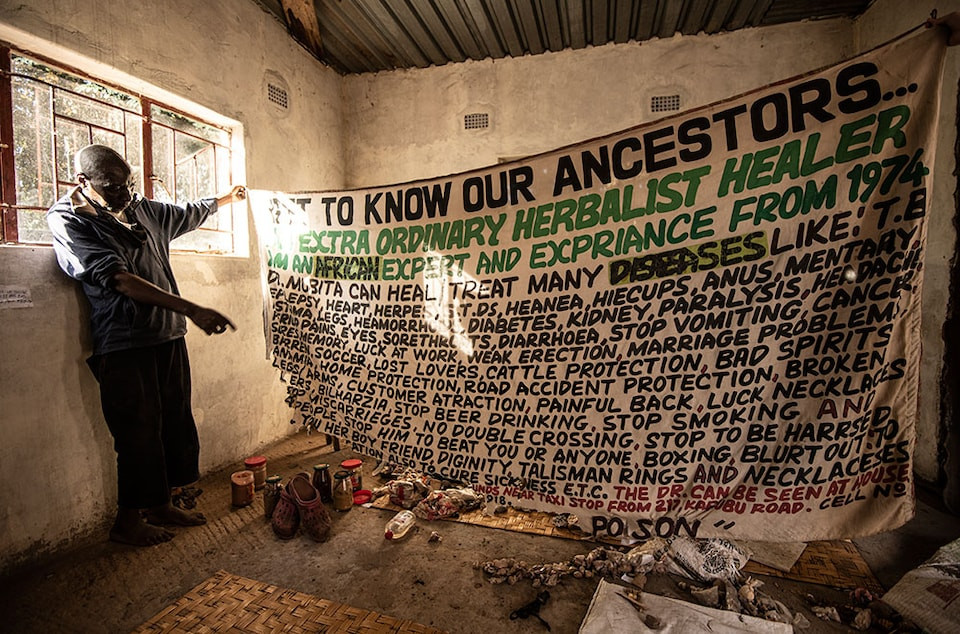 TO KNOW OUR ANCESTORS...
EXTRA ORDINARY HERBALIST HEALER
AN AFRICAN EXPERT AND EXPRIANCE FROM 1974
MUBITA CAN HEAL, TREAT MANY DISEASES LIKE: T.B
HEART, HERPES, HEANEA, HIECUPS, ANUS, MENTARY,
LEGS, HEAMORRHOIDS, DIABETES, KIDNEY, PARALYSIS, HEADACH
PAINS, EYES, SORETHROTS, DIARRHOEA, STOP VOMITING, CANCER
MEMORY, LUCK AT WORK, WEAK ERECTION, MARRIAGE PROBLEMS
SOCCER, LOST LOVERS, CATTLE PROTECTION, BAD SPIRITS
HOME PROTECTION, ROAD ACCIDENT PROTECTION, BROKEN
ARMS, CUSTOMER ATRACTION, PAINFUL BACK, LUCK NECKLACES
BILHARZIA, STOP BEER DRINKING, STOP SMOKING AND
NO DOUBLE CROSSING, STOP TO BE HARRSED
STOP HIM TO BEAT YOU OR ANYONE, BOXING, BLURT OUT TO
HER BOY FRIEND DIGINITY, TALISMAN RINGS AND NECKLACESES
ALSO TO CURE SICKNESS E.T.C. THE DR. CAN BE SEEN AT HOUSE
NEAR TAXI STOP FROM 217, KAFUBU ROAD. CELL NS
POISON "